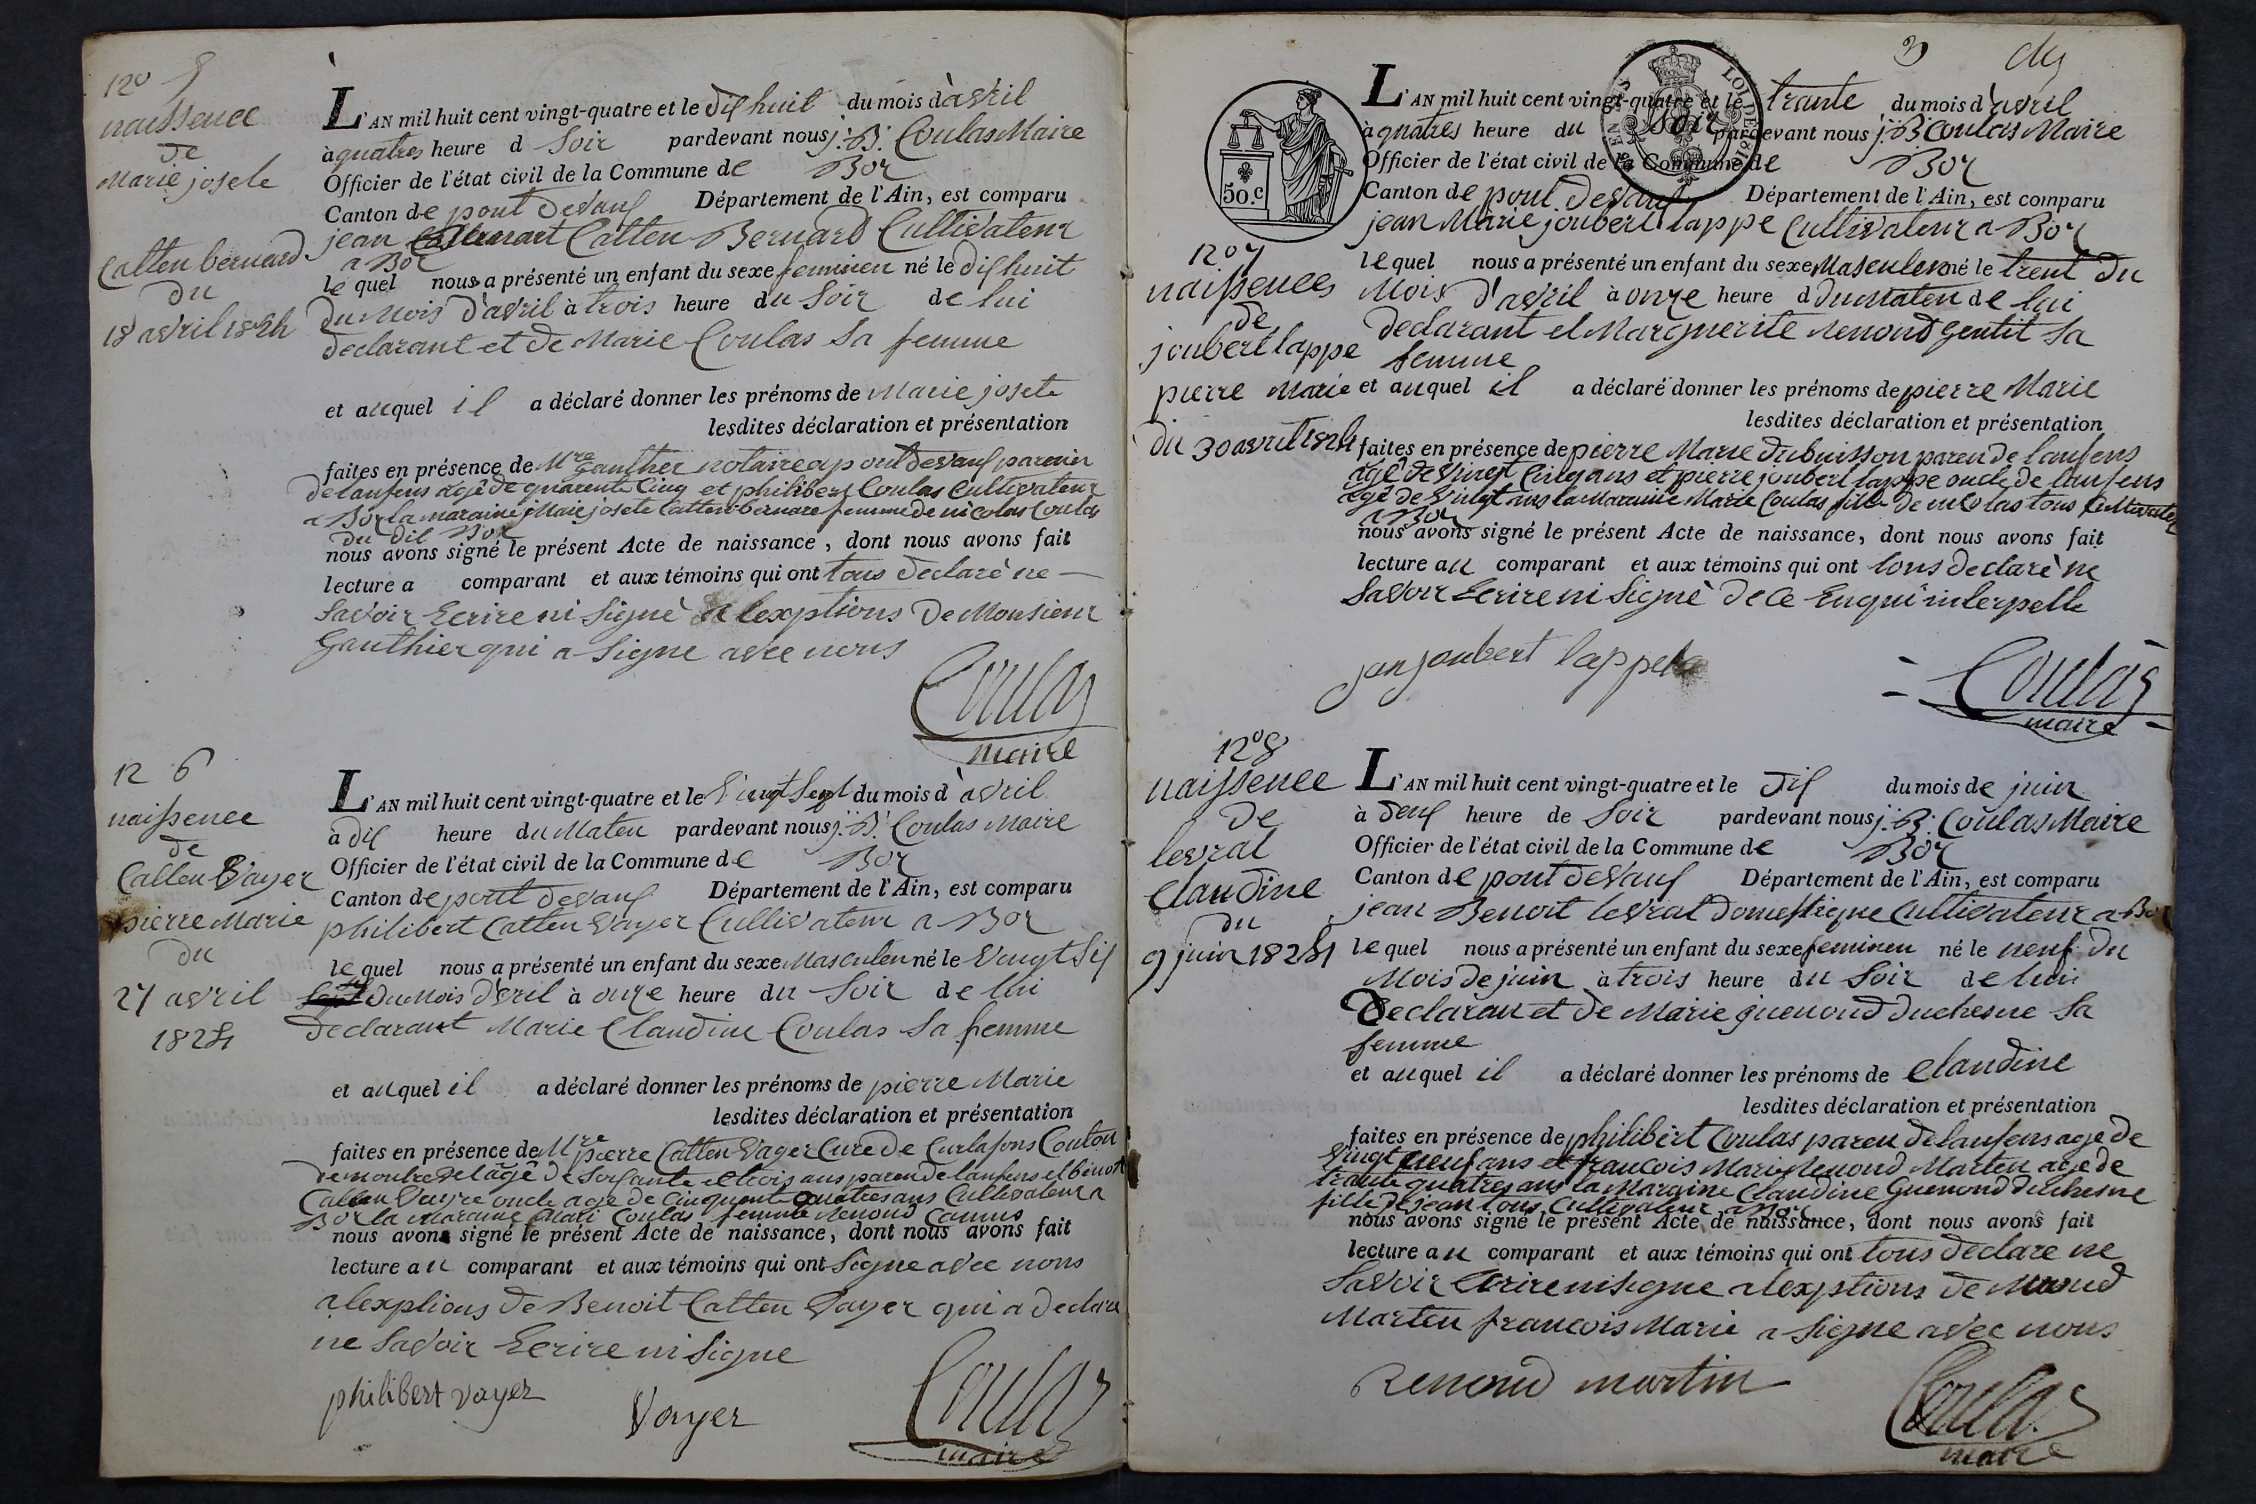 12º 5
naissence
de
Marie josete
Catten bernard
du
18 avril 1824
L'AN mil huit cent vingt-quatre et le dix huit du mois d'avril
à quatres heure d Soir pardevant nous j: B: Coulas Maire
Officier de l'état civil de la Commune de Boz
Canton de pont devaux Département de l'Ain, est comparu
jean Catten Bernard Cultivateur
a Boz
le quel nous a présenté un enfant du sexe feminien né le dix huit
du Mois d'avril à trois heure du Soir de lui
declarant et de Marie Coulas Sa femme
et auquel il a déclaré donner les prénoms de Marie josete
lesdites déclaration et présentation
faites en présence de Mre Gauthier notaire a pont devaux parenin
de lanfens agé de quarente Cinq et philibert Coulas Cultivateur
a Boz la maraine Marie josete Catten bernare femme de nicolas Coulas
du dit Boz
nous avons signé le présent Acte de naissance, dont nous avons fait
lecture a comparant et aux témoins qui ont tous declaré ne
Savoir Ecrire ni Signé a lexptions de Monsieur
Gauthier qui a Signe avec nous
Coulas
maire
12 6
naissence
de
Catten Vayer
pierre Marie
du
27 avril
1824
L'AN mil huit cent vingt-quatre et le Vingt Sept du mois d'avril
à dix heure du Maten pardevant nous j: B: Coulas Maire
Officier de l'état civil de la Commune de Boz
Canton de pont devaux Département de l'Ain, est comparu
philibert Catten Vayer Cultivateur a Boz
le quel nous a présenté un enfant du sexe Masculen né le Vingt Six
du Mois d'vril à onze heure du Soir de lui
declarant Marie Claudine Coulas Sa femme
et auquel il a déclaré donner les prénoms de pierre Marie
lesdites déclaration et présentation
faites en présence de Mre pierre Catten Vager Cure de Curlafons Conton
de montrevel agé de Soisante et trois ans paren de lanfens et benoit
Catten Vayre oncle age de Cinquente quatres ans Cultivateur a
Boz la maraine Mari Coulas femme Renoud Camus
nous avons signé le présent Acte de naissance, dont nous avons fait
lecture au comparant et aux témoins qui ont Signe avec nous
a lexptions de Benoit Catten Vayer qui a declare
ne Savoir Ecrire ni Signe
philibert vayer Vayer
Coulas
maire
3
50.c
LOI DE 1816
L'AN mil huit cent vingt-quatre et le trante du mois d'avril
à quatres heure du Soir pardevant nous j: B: Coulas Maire
Officier de l'état civil de la Commune de Boz
Canton de pont devaux Département de l'Ain, est comparu
jean Marie joubert lappe Cultivateur a Boz
12º 7
naissences
de
joubert lappe
pierre Marie
du 30 avril 1824
le quel nous a présenté un enfant du sexe Masculen né le trent du
Mois d'avril à onze heure d du Maten de lui
declarant et Marguerite renoud gentit Sa
femme
et auquel il a déclaré donner les prénoms de pierre Marie
lesdites déclaration et présentation
faites en présence de pierre Marie dubuisson paren de lanfens
agé de vingt Cinq ans et pierre joubert lappe oncle de lanfens
agé de Vingt ans la Maraine Marie Coulas fille de nicolas tous Cultivateur
a Boz
nous avons signé le présent Acte de naissance, dont nous avons fait
lecture au comparant et aux témoins qui ont tous declaré ne
Savoir Ecrire ni Signé de Ce Enqui interpelle
jan joubert lappe
Coulas
maire
12º 8
naissence
de
levrat
Claudine
du
9 juin 1824
L'AN mil huit cent vingt-quatre et le dix du mois de juin
à deux heure de Soir pardevant nous j: B: Coulas Maire
Officier de l'état civil de la Commune de Boz
Canton de pont devaux Département de l'Ain, est comparu
jean Benoit levrat domestique Cultivateur a Boz
le quel nous a présenté un enfant du sexe feminen né le neuf du
Mois de juin à trois heure du Soir de lui
Declaran et de Marie guenoud duchesne Sa
femme
et auquel il a déclaré donner les prénoms de Claudine
lesdites déclaration et présentation
faites en présence de philibert Coulas paren de lanfens age de
vingt neuf ans et francois Marie Renoud Marten age de
trante quatres ans la Maraine Claudine Guenoud duchesne
fille de jean tous Cultivateur a Boz
nous avons signé le présent Acte de naissance, dont nous avons fait
lecture au comparant et aux témoins qui ont tous declare ne
Savoir Ecrire ni Signe a lexptions de Renoud
Marten francois Marie a Signe avec nous
Renoud martin
Coulas
maire